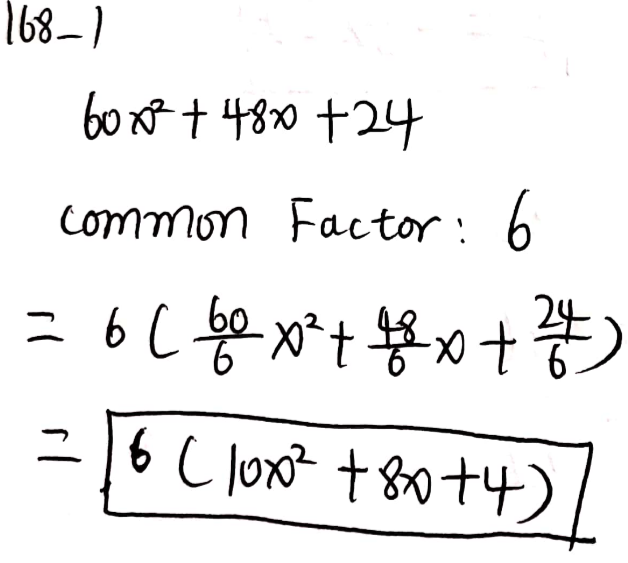 168-1
60x² + 48x + 24
common Factor: 6
= 6 ( 60/6 x² + 48/6 x + 24/6 )
= 6 ( 10x² + 8x + 4 )